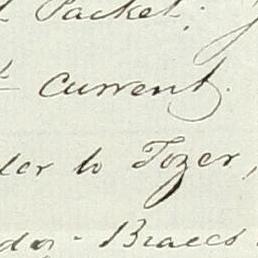 Packet.
current.
to Tozer,
- Braces